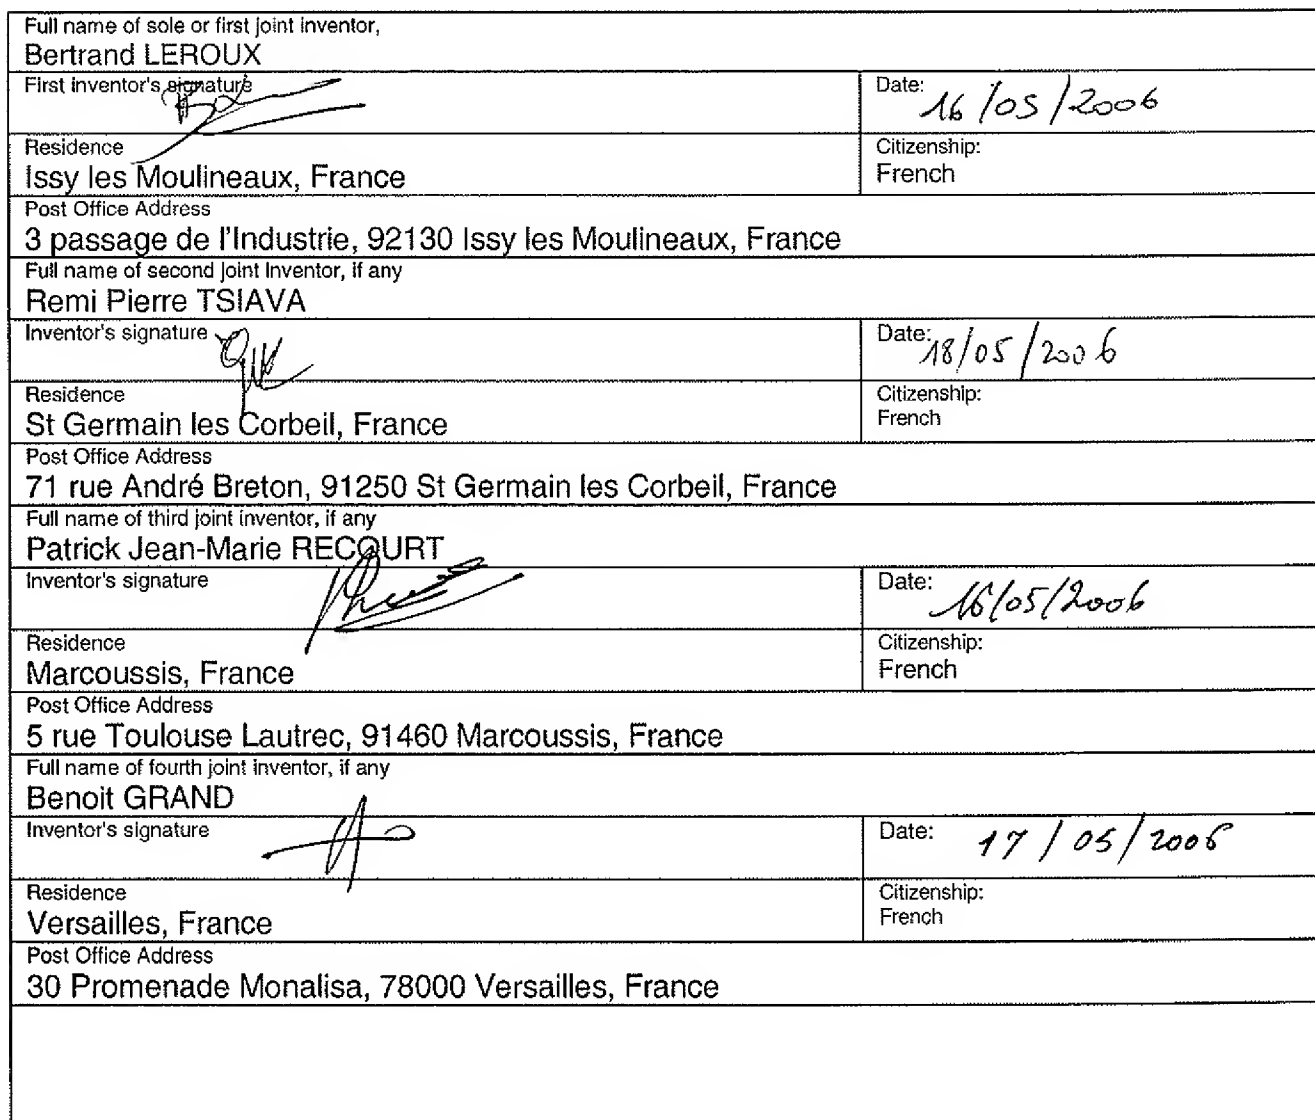 Full name of sole or first joint inventor,
Bertrand LEROUX
First inventor's signature
Date: 16/05/2006
Residence
Issy les Moulineaux, France
Citizenship:
French
Post Office Address
3 passage de l'Industrie, 92130 Issy les Moulineaux, France
Full name of second joint inventor, if any
Remi Pierre TSIAVA
Inventor's signature
Date: 18/05/2006
Residence
St Germain les Corbeil, France
Citizenship:
French
Post Office Address
71 rue André Breton, 91250 St Germain les Corbeil, France
Full name of third joint inventor, if any
Patrick Jean-Marie RECOURT
Inventor's signature
Date: 16/05/2006
Residence
Marcoussis, France
Citizenship:
French
Post Office Address
5 rue Toulouse Lautrec, 91460 Marcoussis, France
Full name of fourth joint inventor, if any
Benoit GRAND
Inventor's signature
Date: 17/05/2006
Residence
Versailles, France
Citizenship:
French
Post Office Address
30 Promenade Monalisa, 78000 Versailles, France